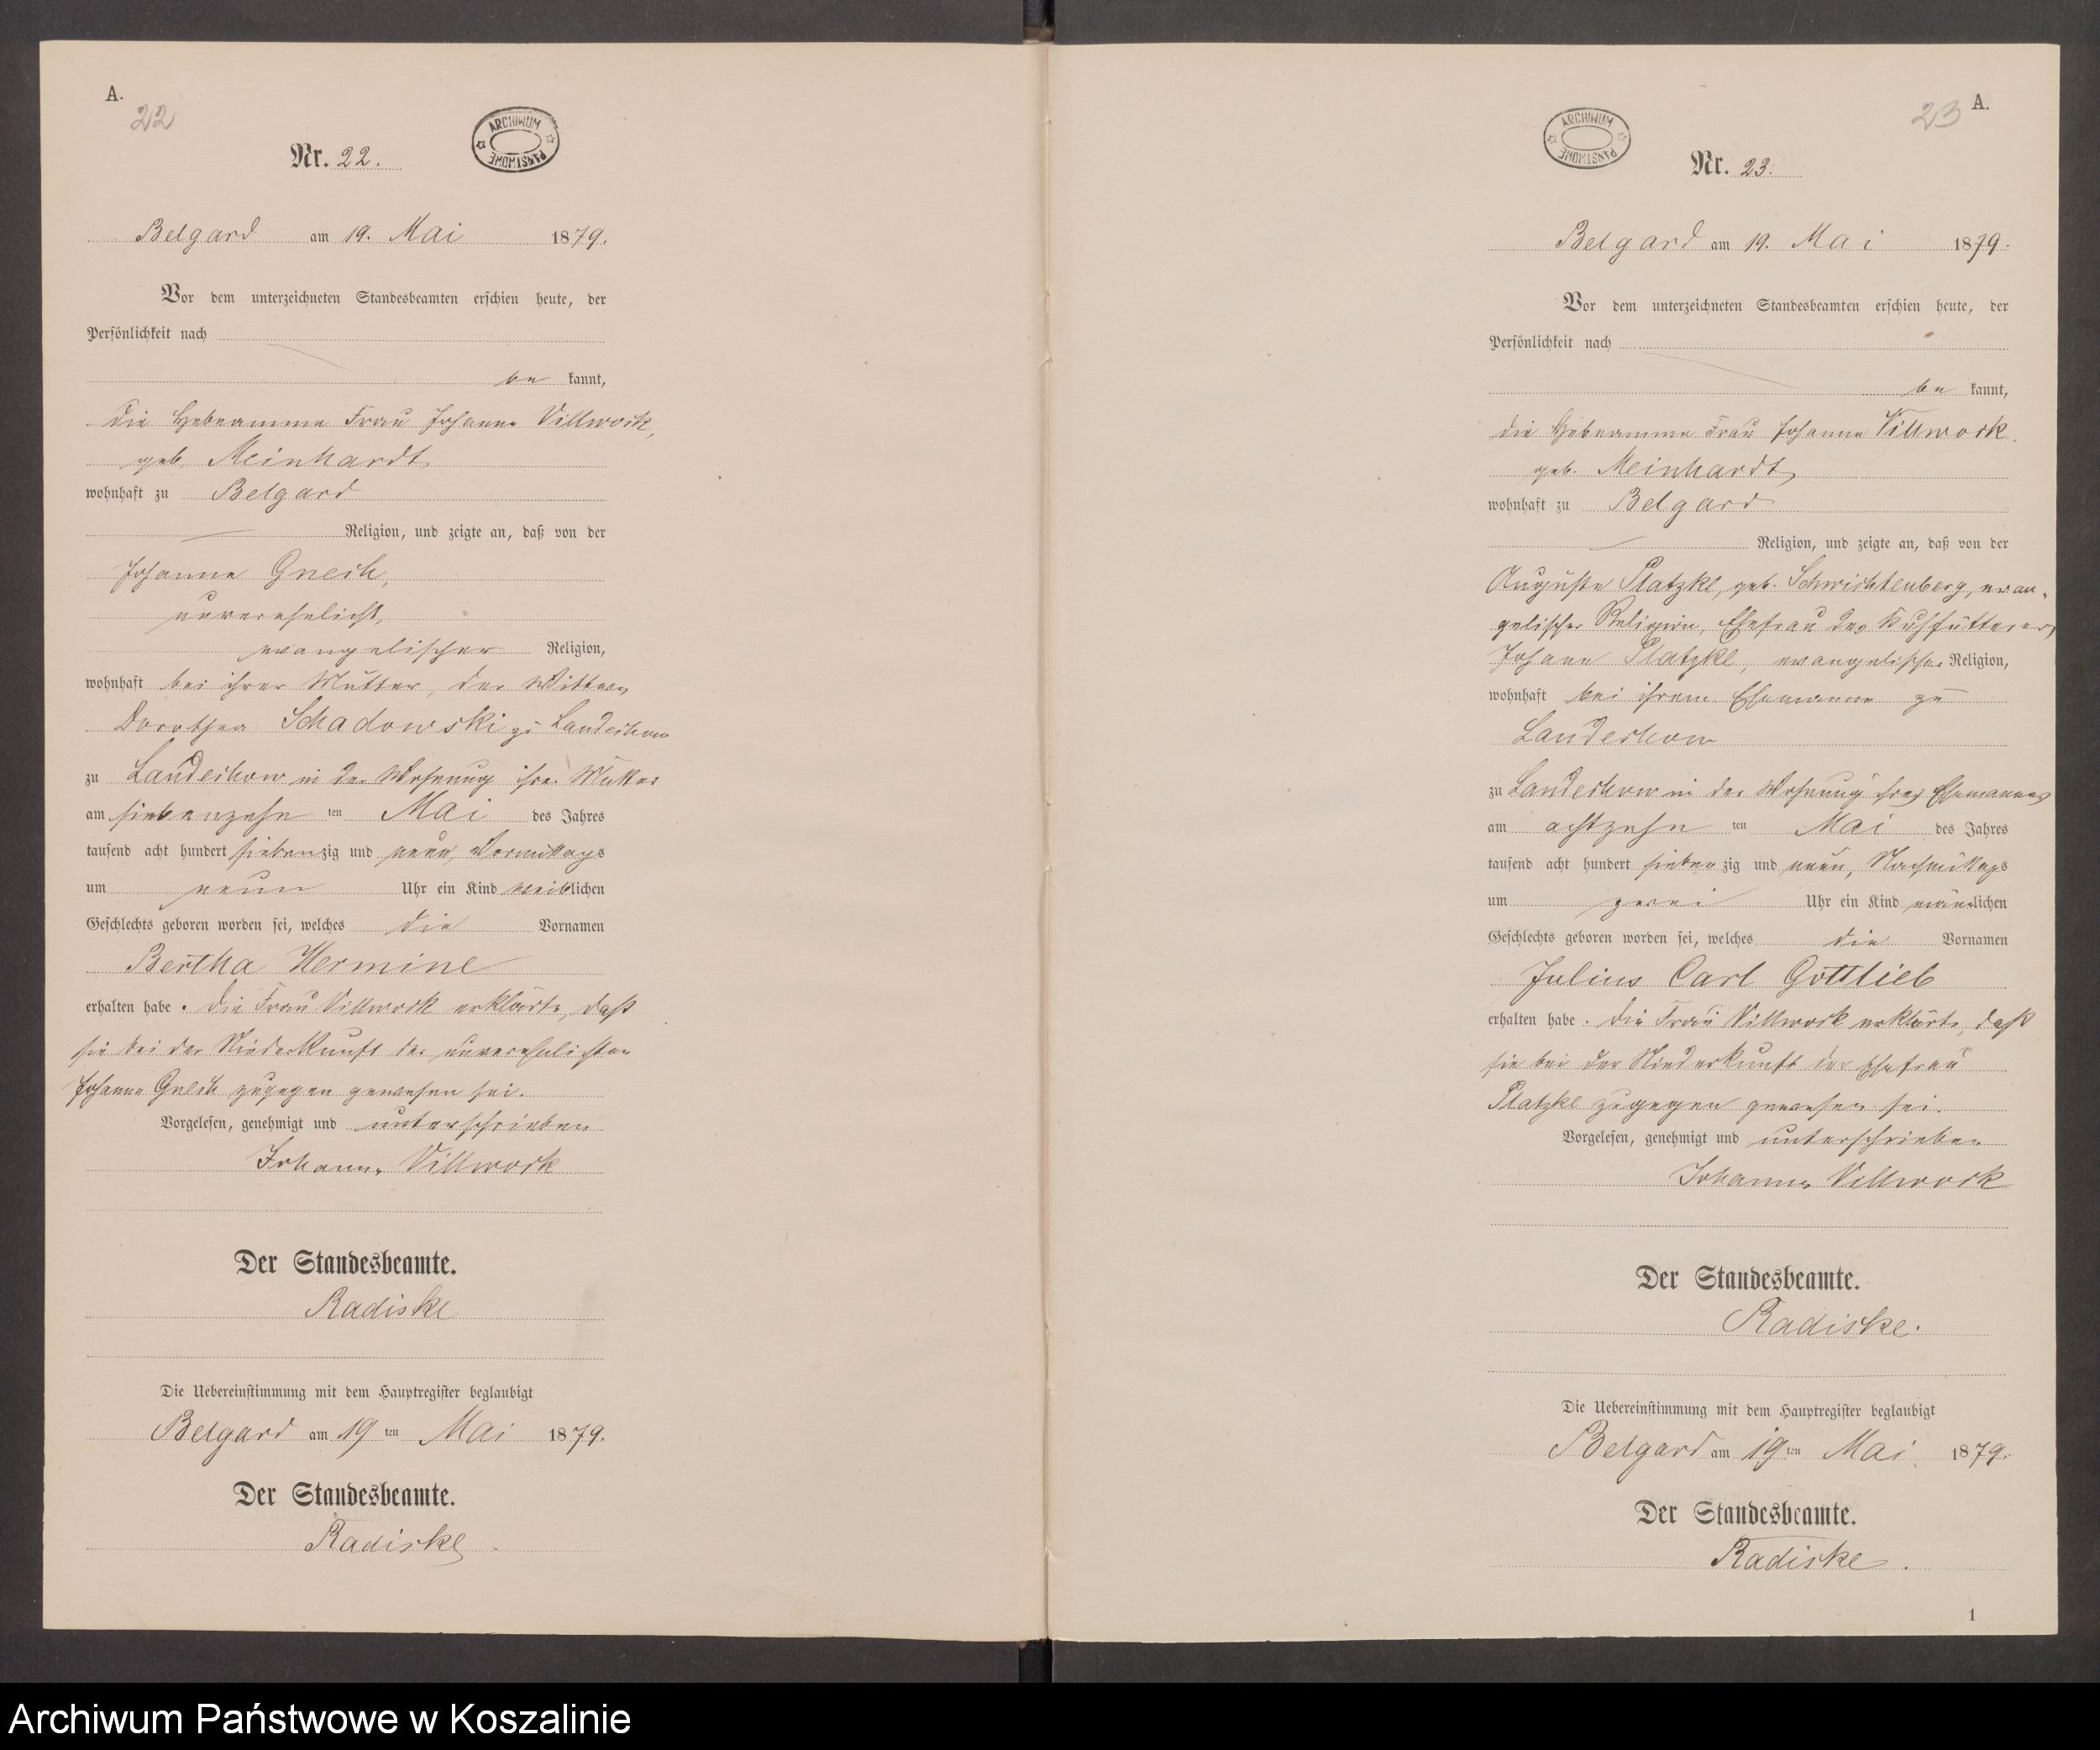 A.
22
ARCHIWUM PAŃSTWOWE
Nr. 22.
Belgard am 19. Mai 1879.
Vor dem unterzeichneten Standesbeamten erschien heute, der
Persönlichkeit nach
be kannt,
die Hebeamme Frau Johanne Villwock,
geb. Meinhardt,
wohnhaft zu Belgard
Religion, und zeigte an, daß von der
Johanne Gnech,
unverehelicht,
evangelischer Religion,
wohnhaft bei ihrer Mutter, der Wittwe
Dorothea Schadowski zu
zu in der Wohnung ihrer Mutter
am siebenzehn ten Mai des Jahres
tausend acht hundert siebenzig und neun, Vormittags
um neun Uhr ein Kind weiblichen
Geschlechts geboren worden sei, welches die Vornamen
Bertha Hermine
erhalten habe. Die Frau Villwock erklärte, daß
sie bei der Niederkunft der unverehelichten
Johanne Gnech zugegen gewesen sei.
Vorgelesen, genehmigt und unterschrieben
Johanne Villwock
Der Standesbeamte.
Radiske
Die Uebereinstimmung mit dem Hauptregister beglaubigt
Belgard am 19 ten Mai 1879.
Der Standesbeamte.
Radiske
23
A.
ARCHIWUM PAŃSTWOWE
Nr. 23.
Belgard am 19. Mai 1879.
Vor dem unterzeichneten Standesbeamten erschien heute, der
Persönlichkeit nach
be kannt,
die Hebeamme Frau Johanne Villwock,
geb. Meinhardt,
wohnhaft zu Belgard
Religion, und zeigte an, daß von der
Auguste Platzke, geb. Schwichtenberg, evan-
gelischer Religion, Ehefrau des Kuhfütterers
Johann Platzke, evangelischer Religion,
wohnhaft bei ihrem Ehemanne zu
zu in der Wohnung ihres Ehemannes
am achtzehn ten Mai des Jahres
tausend acht hundert siebenzig und neun, Nachmittags
um zwei Uhr ein Kind männlichen
Geschlechts geboren worden sei, welches die Vornamen
Julius Carl Gottlieb
erhalten habe. Die Frau Villwock erklärte, daß
sie bei der Niederkunft der Ehefrau
Platzke zugegen gewesen sei.
Vorgelesen, genehmigt und unterschrieben
Johanne Villwock
Der Standesbeamte.
Radiske.
Die Uebereinstimmung mit dem Hauptregister beglaubigt
Belgard am 19 ten Mai 1879.
Der Standesbeamte.
Radiske.
1
Archiwum Państwowe w Koszalinie